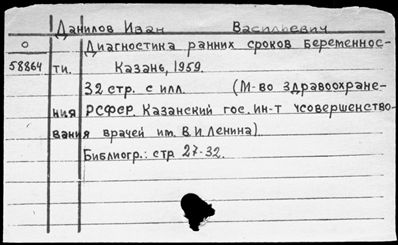 Данилов Иван Васильевич
О Диагностика ранних сроков беременнос-
58864 ти. Казань, 1959.
32 стр. с илл. (М-во здравоохране-
ния РСФСР. Казанский гос. ин-т усовершенство-
вания врачей им. В.И. Ленина).
Библиогр.: стр 27-32.